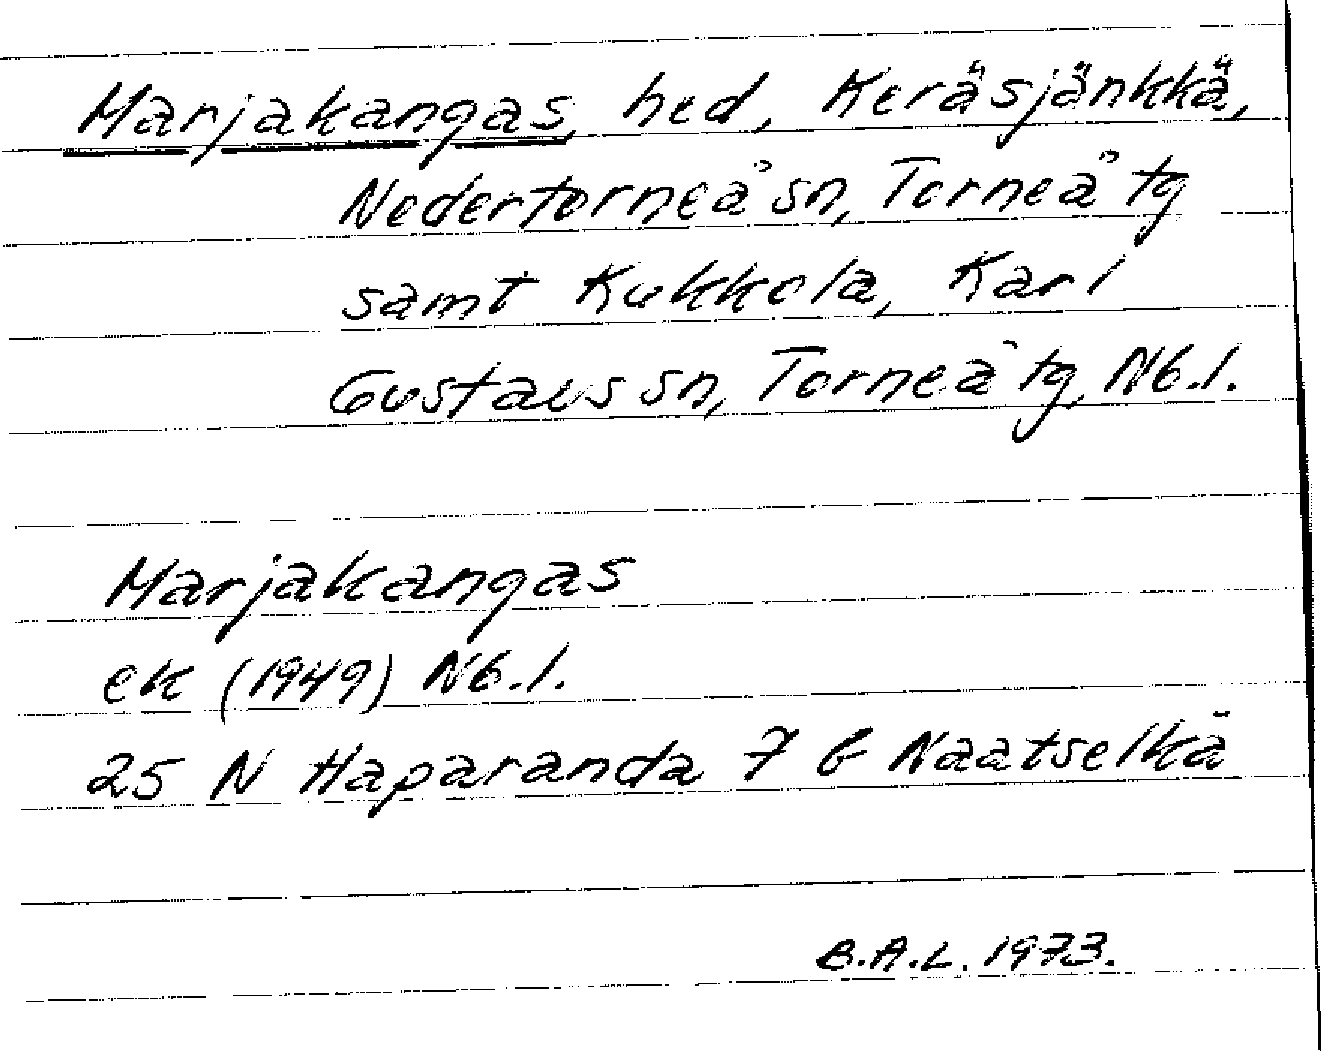 Marjakangas, hed, Keräsjänkkä,
Nedertorneå sn, Torneå tg
samt Kukkola, Karl
Gustavs sn, Torneå tg, Nb.l.
Marjakangas
ek (1949) Nb.l.
25 N Haparanda 7 b Naatselkä
B.A.L. 1973.